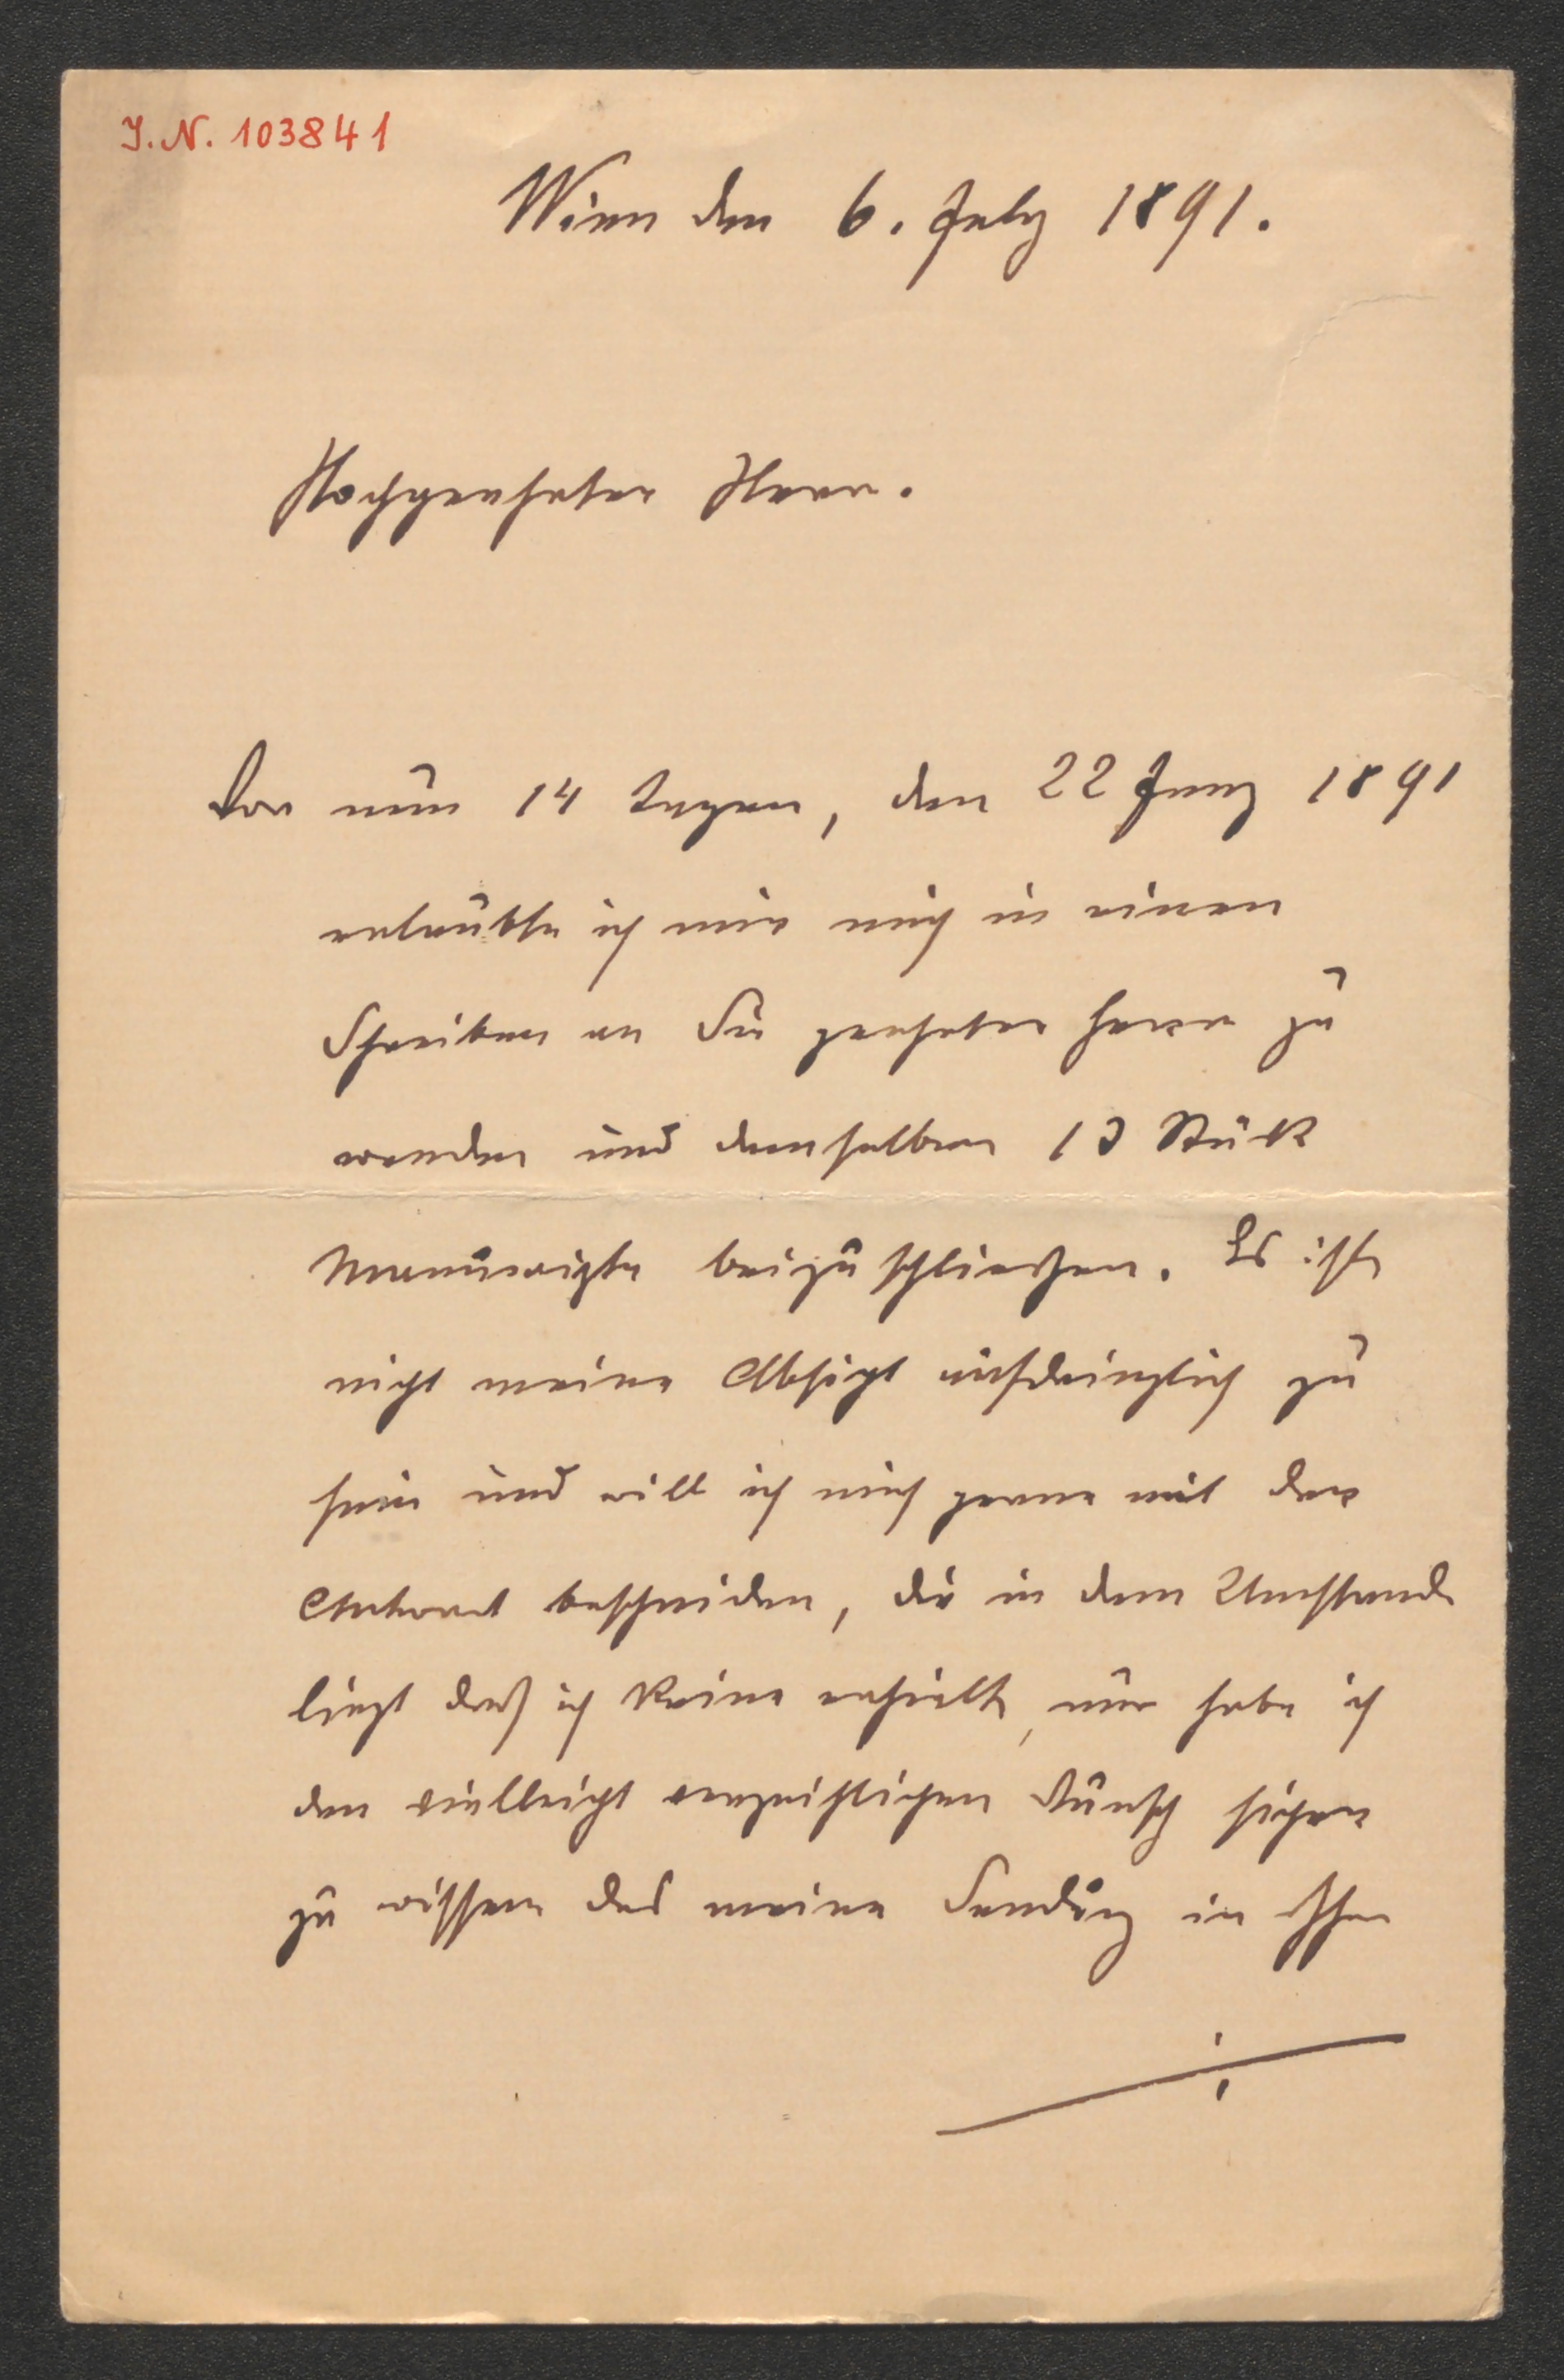 J.N. 103841
Wien den 6. July 1891.
Hochgeehrter Herr.
Vor nun 14 Tagen, den 22 Juny 1891
erlaubte ich mir mich in einen
Schreiben an Sie geehrter Herr zu
wenden und demselben 13 Stück
Manuscripte beizuschließen. Es ist
nicht meine Absicht aufdringlich zu
sein und will ich mich gerne mit der
Antwort bescheiden, die in dem Umstande
liegt daß ich keine erhielt, nur habe ich
den vielleicht verzeihlichen Wunsch sicher
zu wissen das meine Sendung in Ihre